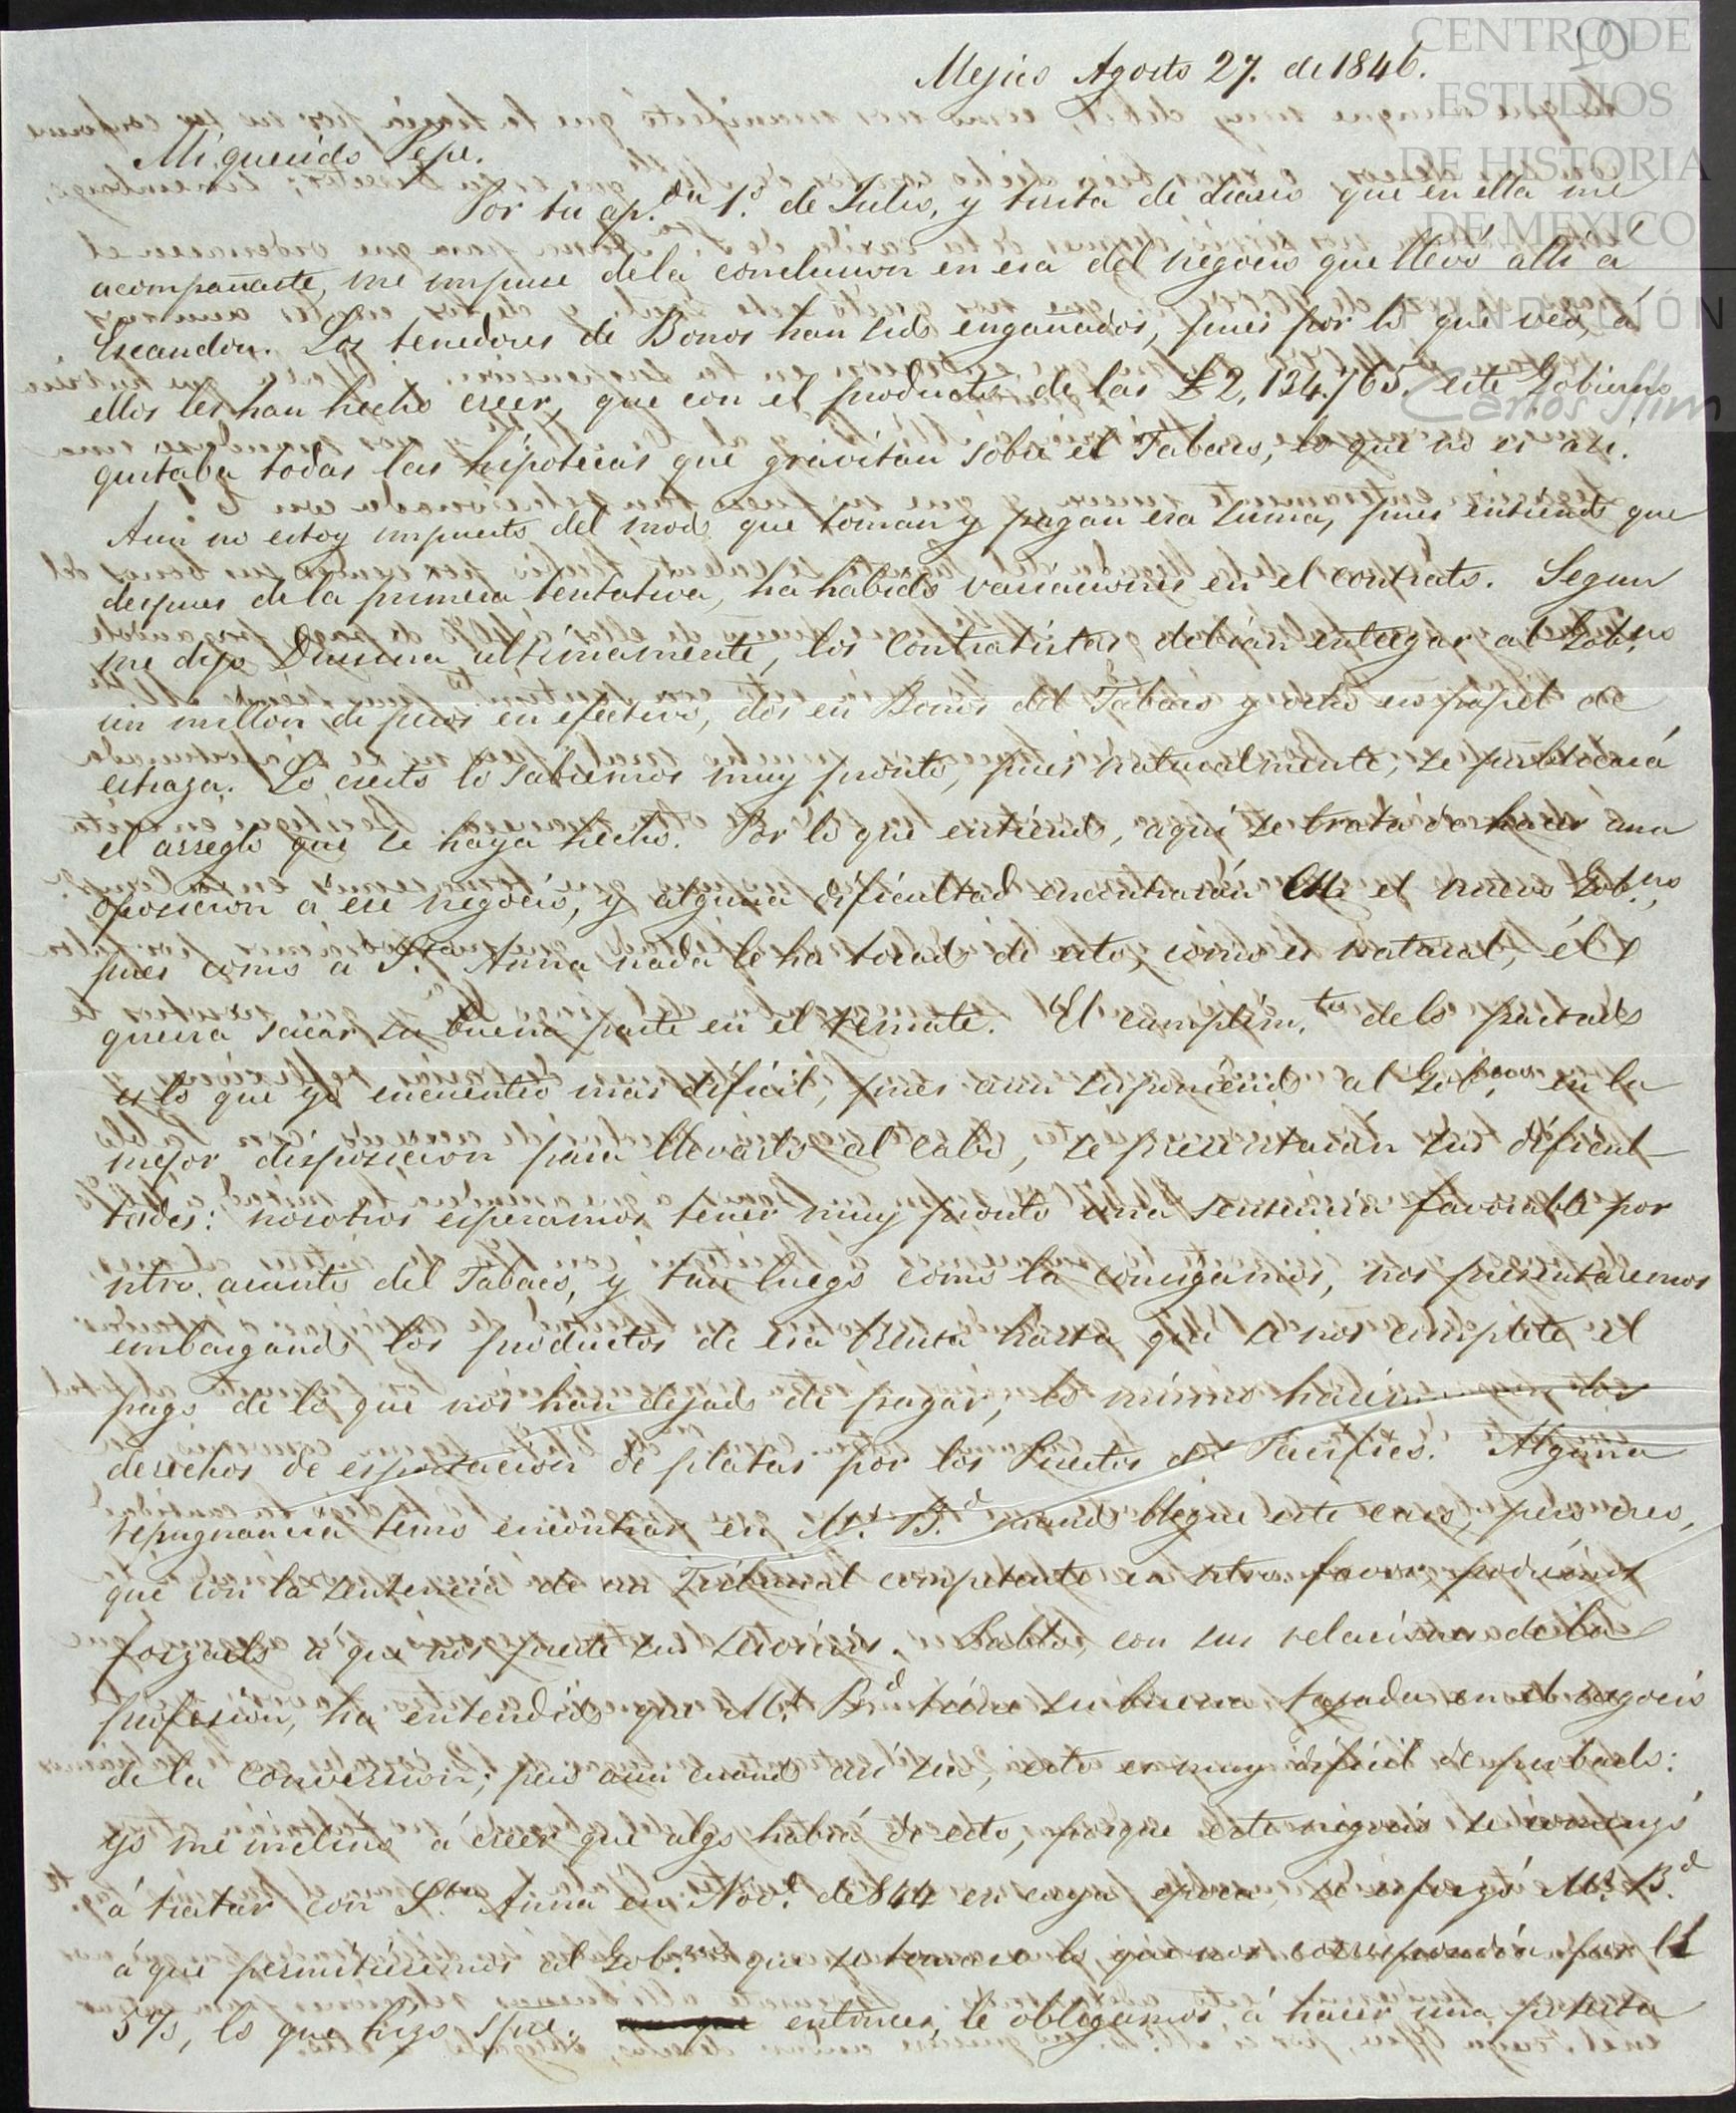 CENTRO DE
ESTUDIOS
DE HISTORIA
DE MEXICO
FUNDACIÓN
Carlos Slim
10
Mejico Agosto 27. de 1846.
Mi querido Pepe.
Por tu ap.da 1.o de Julio, y tirita de diario que en ella me
acompañaste, me impuse dela conclusion en esa del negocio que llevó alli á
Escandon. Los tenedores de Bonos han sido engañados, pues por lo que veo, á
ellos les han hecho creer, que con el producto de las £2,134.765. este Gobierno
quitaba todas las hipotecas que gravitan sobre el Tabaco, lo que no es asi.
Aun no estoy impuesto del modo que toman y pagan esa suma, pues entiendo que
despues dela primera tentativa, ha habido variaciones en el contrato. Segun
me dijo Drusina ultimamente, los contratistas debian entregar al Gob.no
un millon de pesos en efectivo, dos en Bonos del Tabaco y ocho en papel de
estraza. Lo cierto lo sabremos muy pronto, pues naturalmente, se publicará
el arreglo que se haya hecho. Por lo que entiendo, aqui se trata de hacer una
oposicion á ese negocio, y alguna dificultad encontrarán en el nuevo Gob.no,
pues como a S.ta Anna nada le ha tocado de esto, como es natural, él
querra sacar su buena parte en el remate. El cumplim.to delo pactado
es lo que yo encuentro mas dificil, pues aun suponiendo al Gob.no en la
mejor disposicion para llevarlo al cabo, se presentarán sus dificul-
tades: nosotros esperamos tener muy pronto una sentencia favorable por
ntro. asunto del Tabaco, y tan luego como la consigamos, nos presentaremos
embargando los productos de esa Renta hasta que se nos complete el
pago de lo que nos han dejado de pagar; lo mismo haremos con los
derechos de esportacion de platas por los Puertos del Pacifico. Alguna
repugnancia temo encontrar en Mr. B.d cuando llegue este caso, pero creo,
que con la sentencia de un Tribunal competente en ntro. favor, podremos
forzarlo á que nos preste sus servicios. Pablo, con sus relaciones de la
profesion, ha entendido que Mr. B.d tiene su buena tajada en el negocio
dela conversion; pero aun cuando asi sea, esto es muy dificil de probarlo:
yo me inclino á creer que algo habrá de esto, porque este negocio se comenzó
á tratar con S.ta Anna en Nov.e de 844 en cuya epoca, se esforzó Mr. B.d
á que permitiesemos al Gob.no que se tomase lo que nos correspondia por el
5%, lo que hizo spre. entonces, le obligamos á hacer una protesta